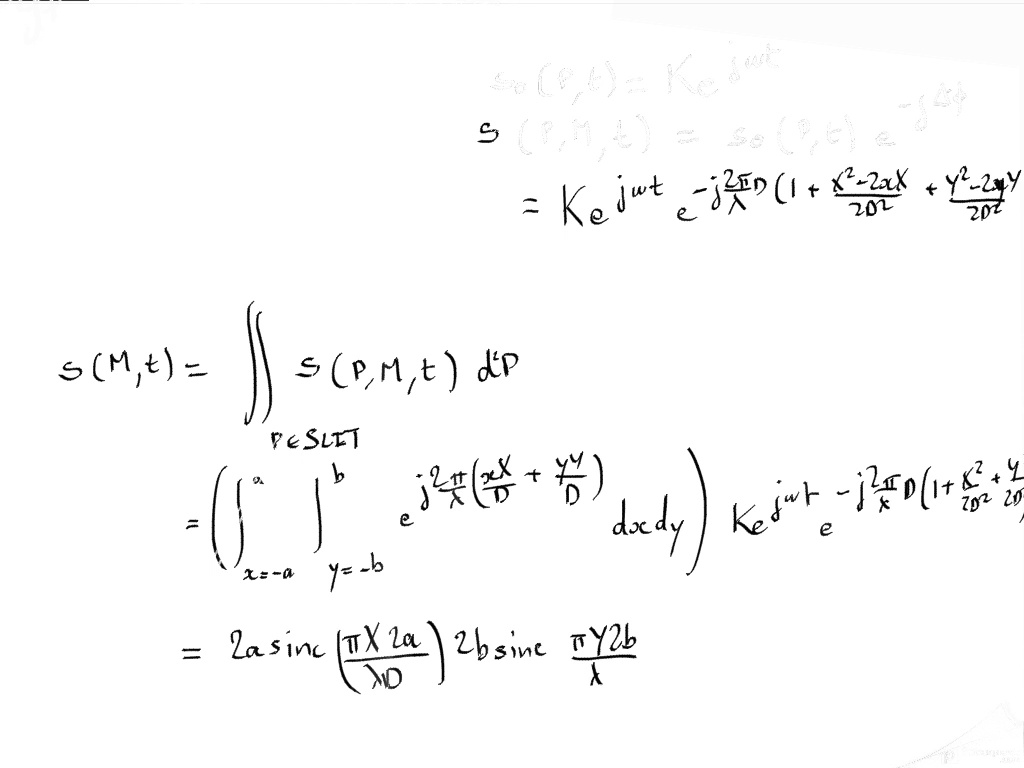 s₀(P,t) = K e^{jωt}
s (P,M,t) = s₀(P,t) e^{-jΔφ}
= K e^{jωt} e^{-j\frac{2π}{λ}D(1 + \frac{X²-2xX}{2D²} + \frac{Y²-2yY}{2D²}}
s(M,t) = ∬_{P∈SLIT} s(P,M,t) d²P
= (∫_{x=-a}^{a} ∫_{y=-b}^{b} e^{j\frac{2π}{λ}(\frac{xX}{D} + \frac{yY}{D})} dxdy) K e^{jωt} e^{-j\frac{2π}{λ}D(1+\frac{X²}{2D²}+\frac{Y}{2D}}
= 2a sinc (\frac{πX2a}{λD}) 2b sinc \frac{πY2b}{λ}